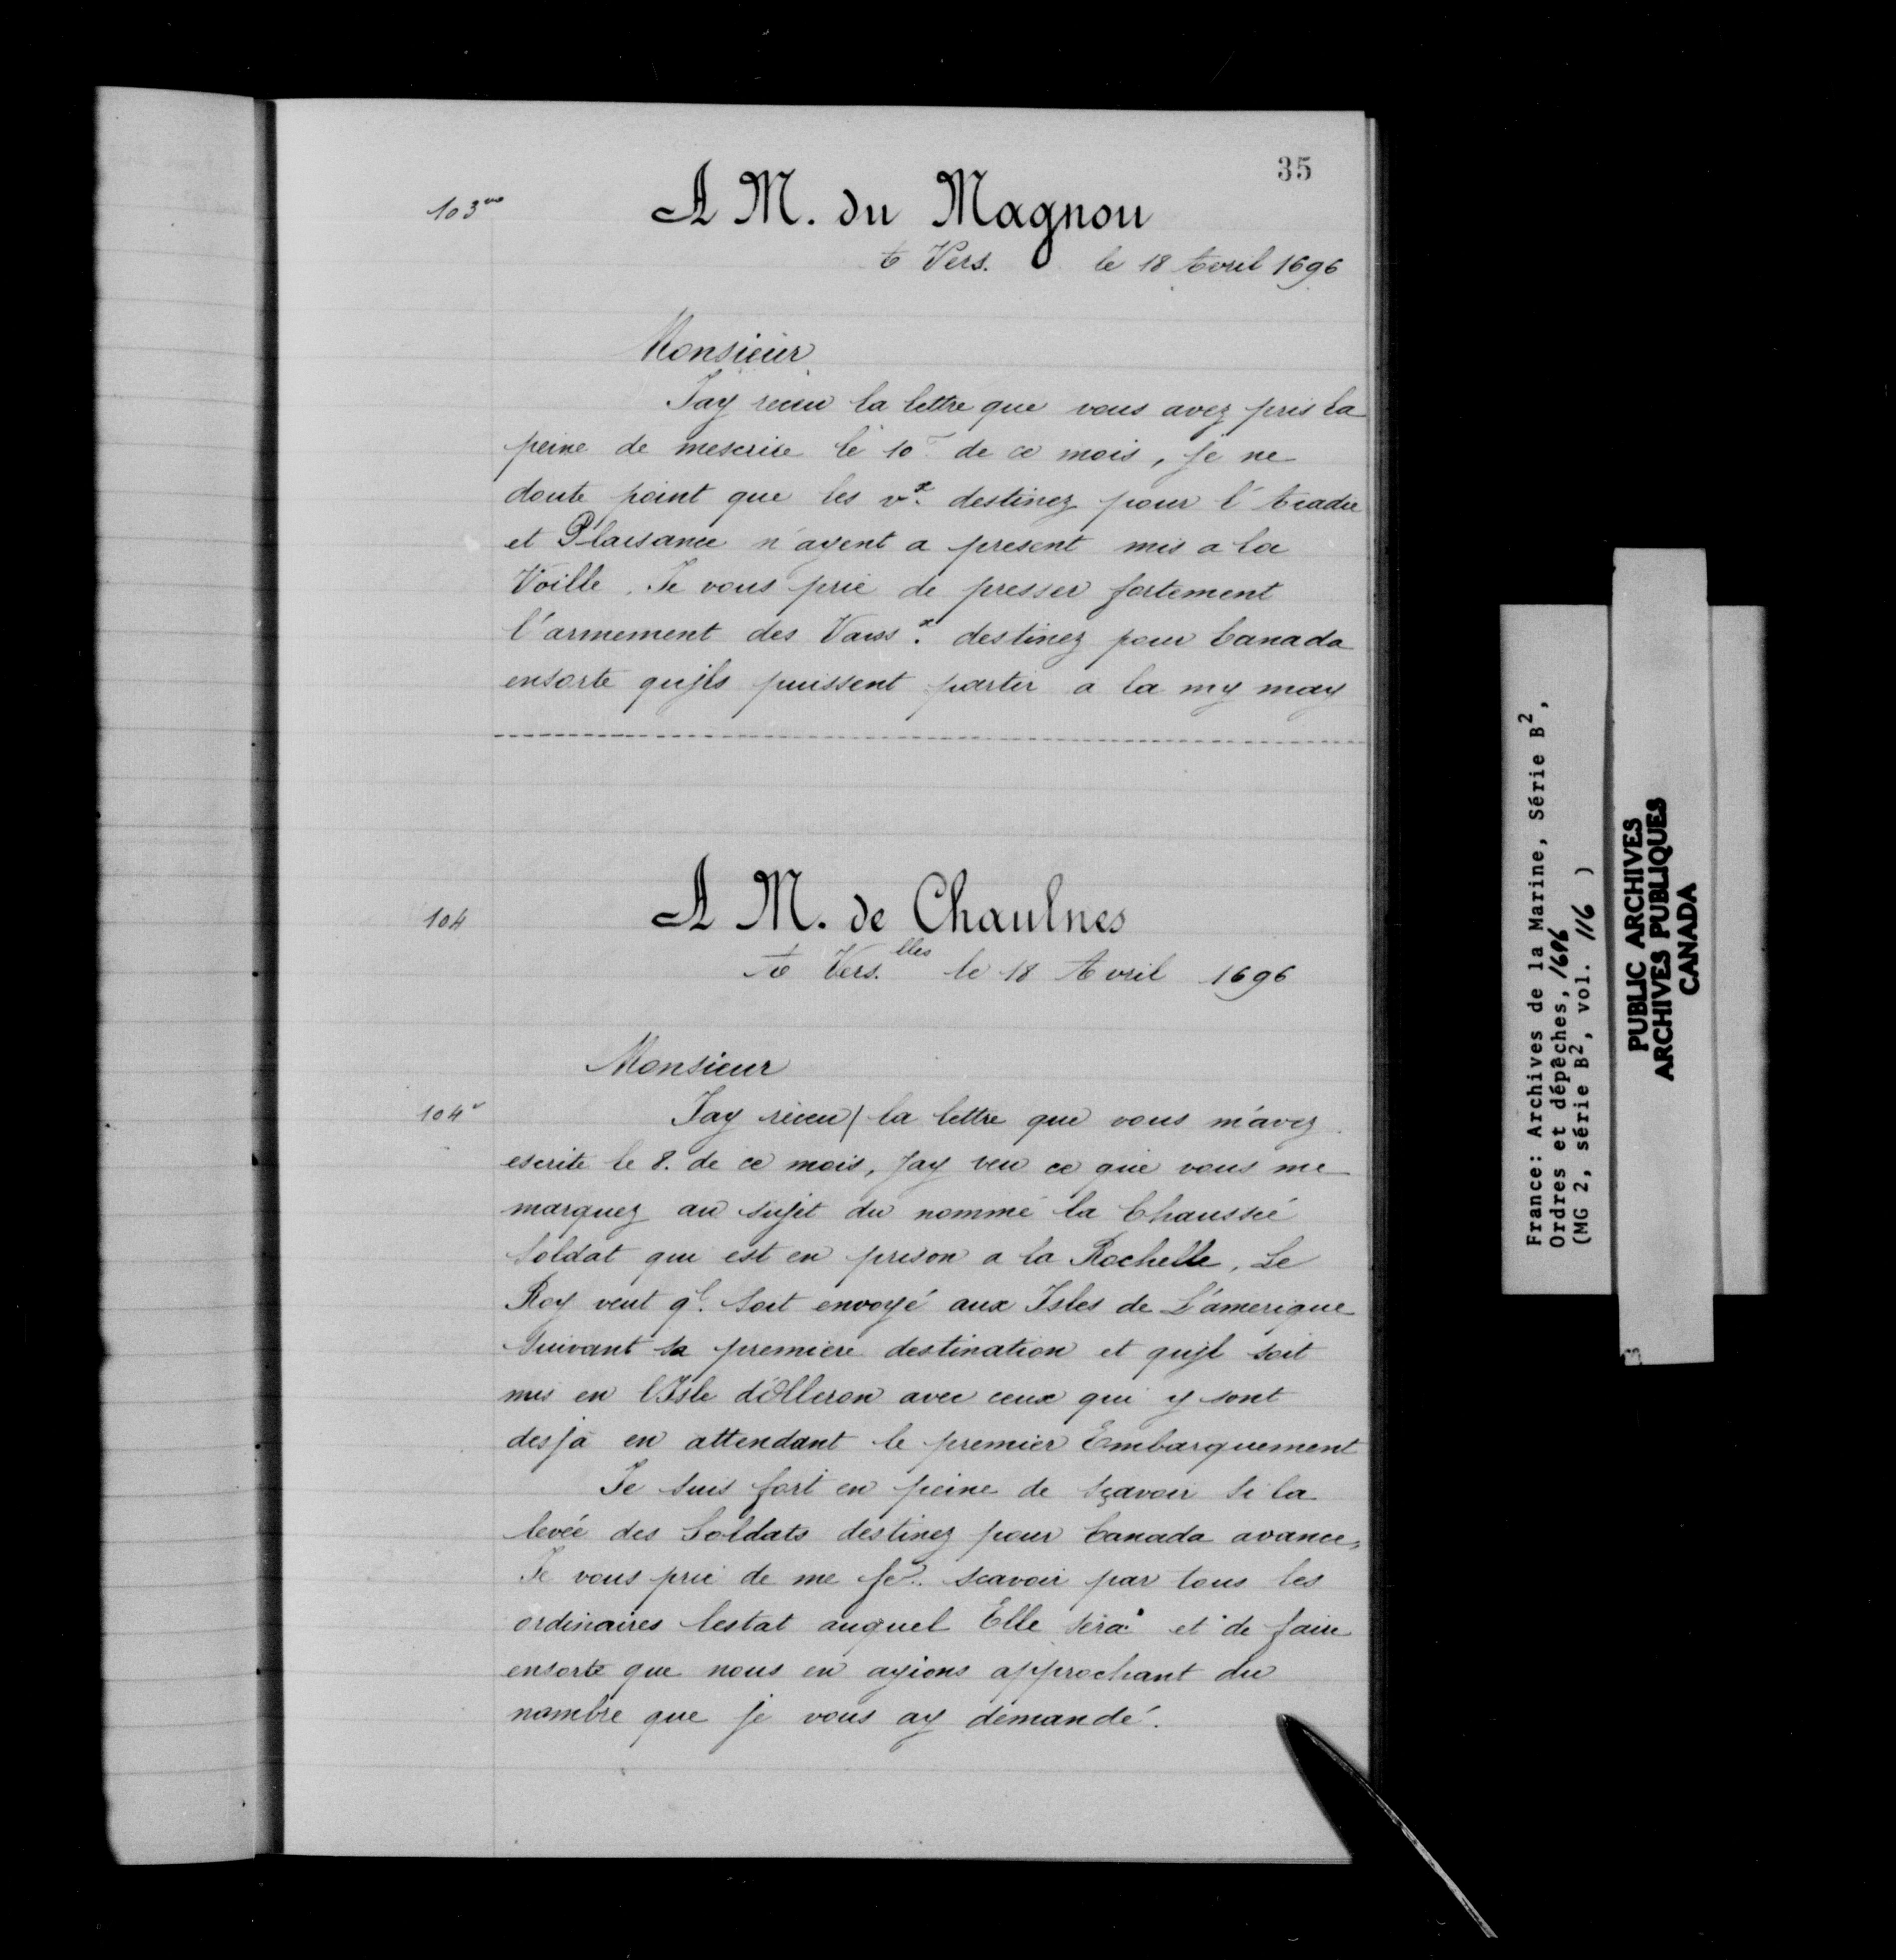 35
103vo
A M. du Magnou
A Vers. le 18 Avril 1696
Monsieur
Jay receu la lettre que vous avez pris la
peine de mescrire le 10 de ce mois, je ne
doute point que les vx. destinez pour l'Acadie
et Plaisance n'ayent a present mis a la
Voille. Je vous prie de presser fortement
l'armement des Vaissx. destinez pour Canada
ensorte qujls puissent partir a la my may
104
A M. de Chaulnes
A Vers.lles le 18 Avril 1696
Monsieur
104v
Jay receu/ la lettre que vous m'avez
escrite le 8. de ce mois, Jay veu ce que vous me
marquez au sujet du nommé la Chaussée
Soldat qui est en prison a la Rochelle, Le
Roy veut ql. soit envoyé aux Isles de L'amerique
suivant sa premiere destination et qujl soit
mis en l'Isle d'Olleron avec ceux qui y sont
desja en attendant le premier Embarquement
Je suis fort en peine de sçavoir si la
levée des Soldats destinez pour Canada avance,
Je vous prie de me fe. scavoir par tous les
ordinaires lestat auquel Elle sera et de faire
ensorte que nous en ayions approchant du
nombre que je vous ay demandé.
France: Archives de la Marine, Série B2,
Ordres et dépêches, 1696
(MG 2, série B2, vol. 116 )
PUBLIC ARCHIVES
ARCHIVES PUBLIQUES
CANADA